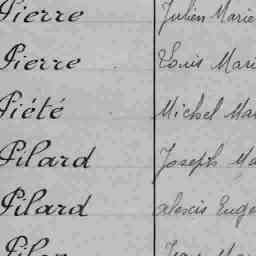 Pierre Julien Marie
Pierre Louis Mari
Piété Michel Mar
Pilard Joseph Ma
Pilard alexis Euge